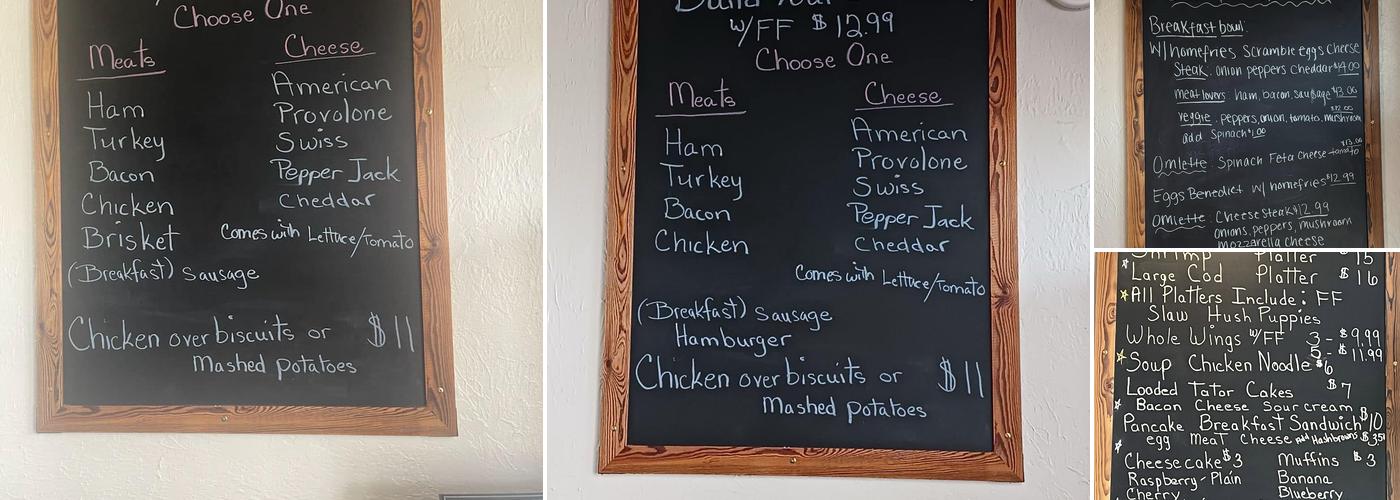 Choose One
Meats
Cheese
Ham
Turkey
Bacon
Chicken
Brisket
(Breakfast) Sausage
American
Provolone
Swiss
Pepper Jack
Cheddar
Comes with Lettuce/Tomato
Chicken over biscuits or $11
Mashed potatoes
w/FF $12.99
Choose One
Meats
Cheese
Ham
Turkey
Bacon
Chicken
American
Provolone
Swiss
Pepper Jack
Cheddar
Comes with Lettuce/Tomato
(Breakfast) Sausage
Hamburger
Chicken over biscuits or $11
Mashed potatoes
Breakfast bowl:
W/homefries Scramble eggs Cheese
Steak: onion peppers Cheddar $14.00
meatlovers: ham, bacon, sausage $13.00
$12.00
veggie: peppers, onion, tomato, mushroom
add Spinach $1.00
$13.00
Omlette Spinach Feta Cheese tomato
Eggs Benedict W/ homefries $12.99
Omlette: Cheese Steak $12.99
Onions, peppers, mushroom
mozzarella cheese
Shrimp Platter $15
Large Cod Platter $16
All Platters Include: FF
Slaw Hush Puppies
Whole Wings w/FF 3 - $9.99
5 - $11.99
Soup Chicken Noodle $6
Looded Tator Cakes $7
Bacon Cheese Sour cream
Pancake Breakfast Sandwich $10
egg Meat Cheese add Hashbrowns $3.50
Cheesecake $3
Muffins $3
Raspberry-Plain
Banana
Cherry
Blueberry